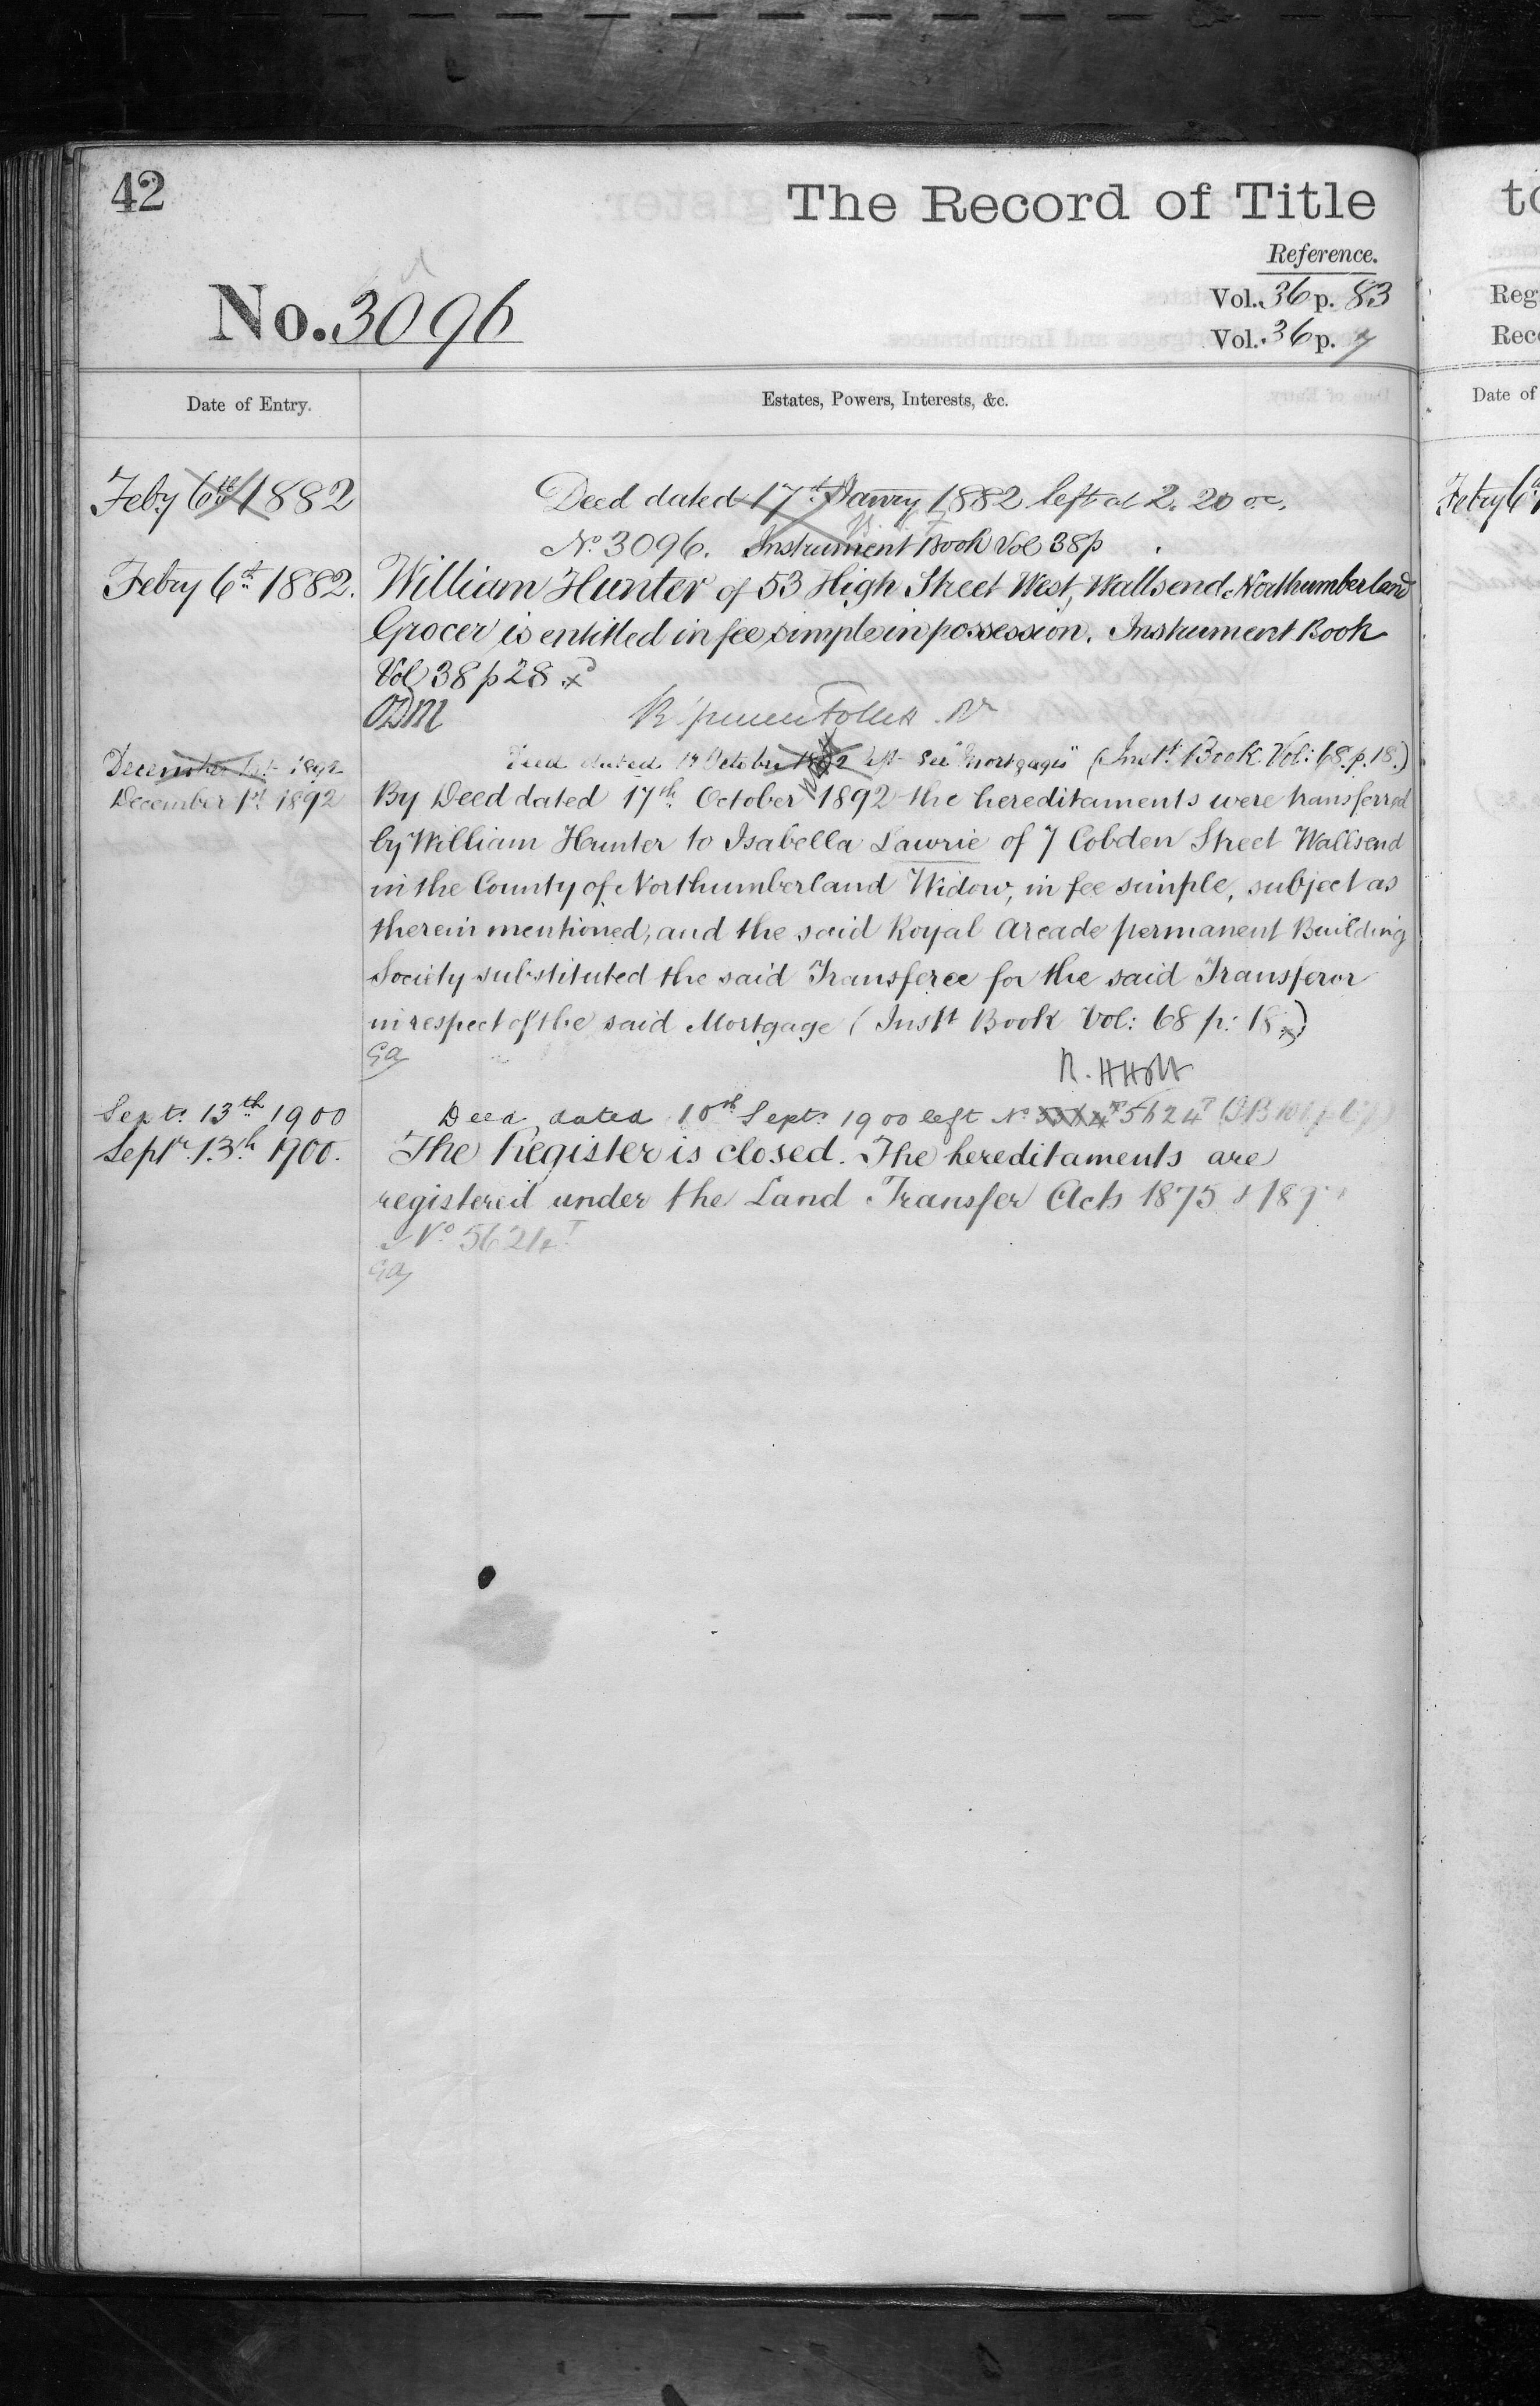 42
The Record of Title
Reference.
No. 3096
Vol. 36 p. 83
Vol. 36 p. 7
Date of Entry.
Estates, Powers, Interests, &c.
Feby 6th 1882
Deed dated 17th Janry 1882 left at 2.20 oc.
No. 3096. Instrument Book Vol 38 p
Febry 6th 1882.
William Hunter of 53 High Street West, Wallsend, Northumberland
Grocer is entitled in fee simple in possession. Instrument Book
Vol 38 p 28
ODM
December 1st 1892
Deed dated 17 October 1892 left See "Mortgages" (Inst: Book. Vol: 68. p. 18.)
December 1st 1892
By Deed dated 17th October 1892 the hereditaments were transferred
by William Hunter to Isabella Lawrie of 7 Cobden Street Wallsend
in the County of Northumberland Widow, in fee simple, subject as
therein mentioned, and the said Royal Arcade permanent Building
Society substituted the said Transferee for the said Transferor
in respect of the said Mortgage (Instt Book Vol: 68 p: 18)
GA
R. H Holt
Sept. 13th 1900
Deed dated 10th Sept. 1900 left No 5624T
Septr. 13th 1900.
The Register is closed. The hereditaments are
registered under the Land Transfer Acts 1875 &
No 5624T
GA
to
Reg
Rec
Date of
Febry 6th